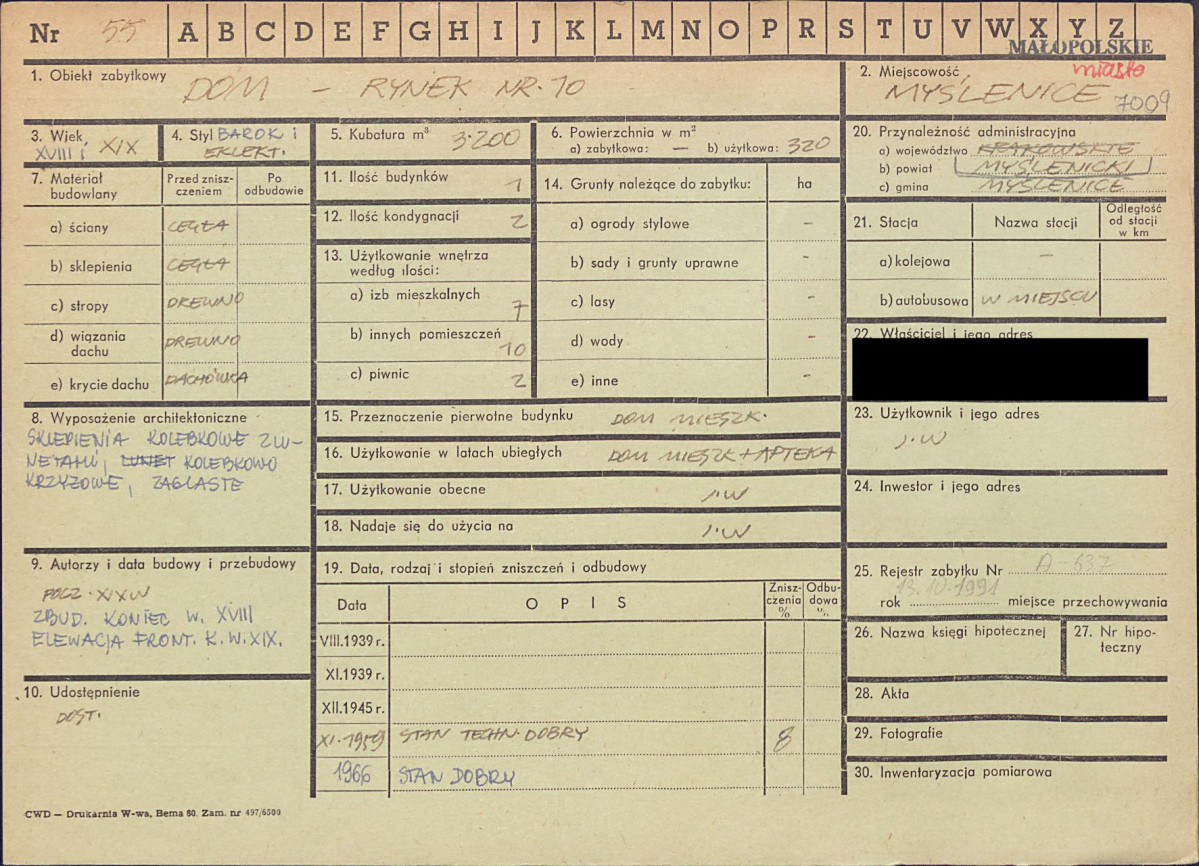 Nr 55 A B C D E F G H I J K L M N O P R S T U V W X Y Z
MAŁOPOLSKIE
1. Obiekt zabytkowy DOM – RYNEK NR. 10
2. Miejscowość miasto
MYŚLENICE 7009
3. Wiek XVIII i XIX
4. Styl BAROK i
EKLEKT.
5. Kubatura m³ 3.200
6. Powierzchnia w m²
a) zabytkowa: — b) użytkowa: 320
7. Materiał budowlany
Przed znisz-
czeniem
Po
odbudowie
a) ściany CEGŁA
b) sklepienia CEGŁA
c) stropy DREWNO
d) wiązania
dachu DREWNO
e) krycie dachu DACHÓWKA
8. Wyposażenie architektoniczne
SKLEPIENIA KOLEBKOWE Z LU-
NETAMI, LUNET KOLEBKOWO
KRZYŻOWE, ZAGLASTE
9. Autorzy i data budowy i przebudowy
POCZ. XIX W
ZBUD. KONIEC W. XVIII
ELEWACJA FRONT. K. W. XIX.
10. Udostępnienie
DOST.
11. Ilość budynków 1
12. Ilość kondygnacji 2
13. Użytkowanie wnętrza
według ilości:
a) izb mieszkalnych
7
b) innych pomieszczeń
10
c) piwnic 2
14. Grunty należące do zabytku: ha
a) ogrody stylowe –
b) sady i grunty uprawne –
c) lasy –
d) wody –
e) inne –
15. Przeznoczenie pierwotne budynku DOM MIESZK.
16. Użytkowanie w latach ubiegłych DOM MIESZK + APTEKA
17. Użytkowanie obecne J.W
18. Nadaje się do użycia na J.W
19. Data, rodzaj i stopień zniszczeń i odbudowy
Data O P I S Znisz-
czenia
% Odbu-
dowa
%
VIII.1939 r.
XI.1939 r.
XII.1945 r.
XI.1959 STAN TECHN. DOBRY 8
1966 STAN DOBRY
20. Przynależność administracyjna
a) województwo KRAKOWSKIE
b) powiat MYŚLENICKI
c) gmina MYŚLENICE
21. Stacja Nazwa stacji Odległość
od stacji
w km
a) kolejowa –
b) autobusowa W MIEJSCU
22. Właściciel i jego adres
23. Użytkownik i jego adres
J.W
24. Inwestor i jego adres
25. Rejestr zabytku Nr A-637
13.IV.1991
rok miejsce przechowywania
26. Nazwa księgi hipotecznej
27. Nr hipo-
teczny
28. Akta
29. Fotografie
30. Inwentaryzacja pomiarowa
CWD — Drukarnia W-wa, Bema 60. Zam. nr 497/6500